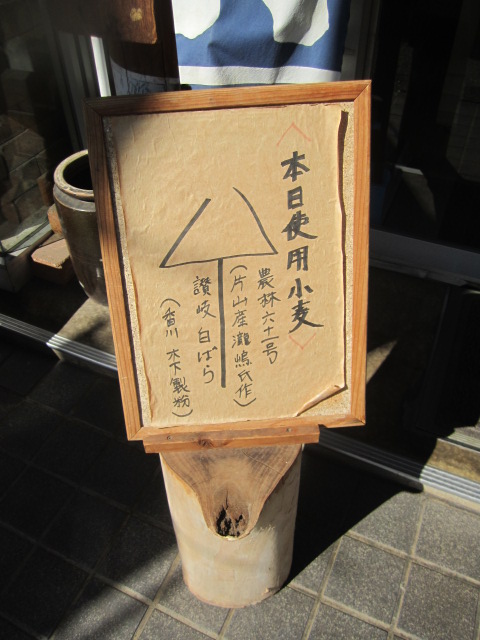 本日使用小麦
農林六十一号
(片山産瀧嶋氏作)
讃岐 白ばら
(香川 木下製粉)